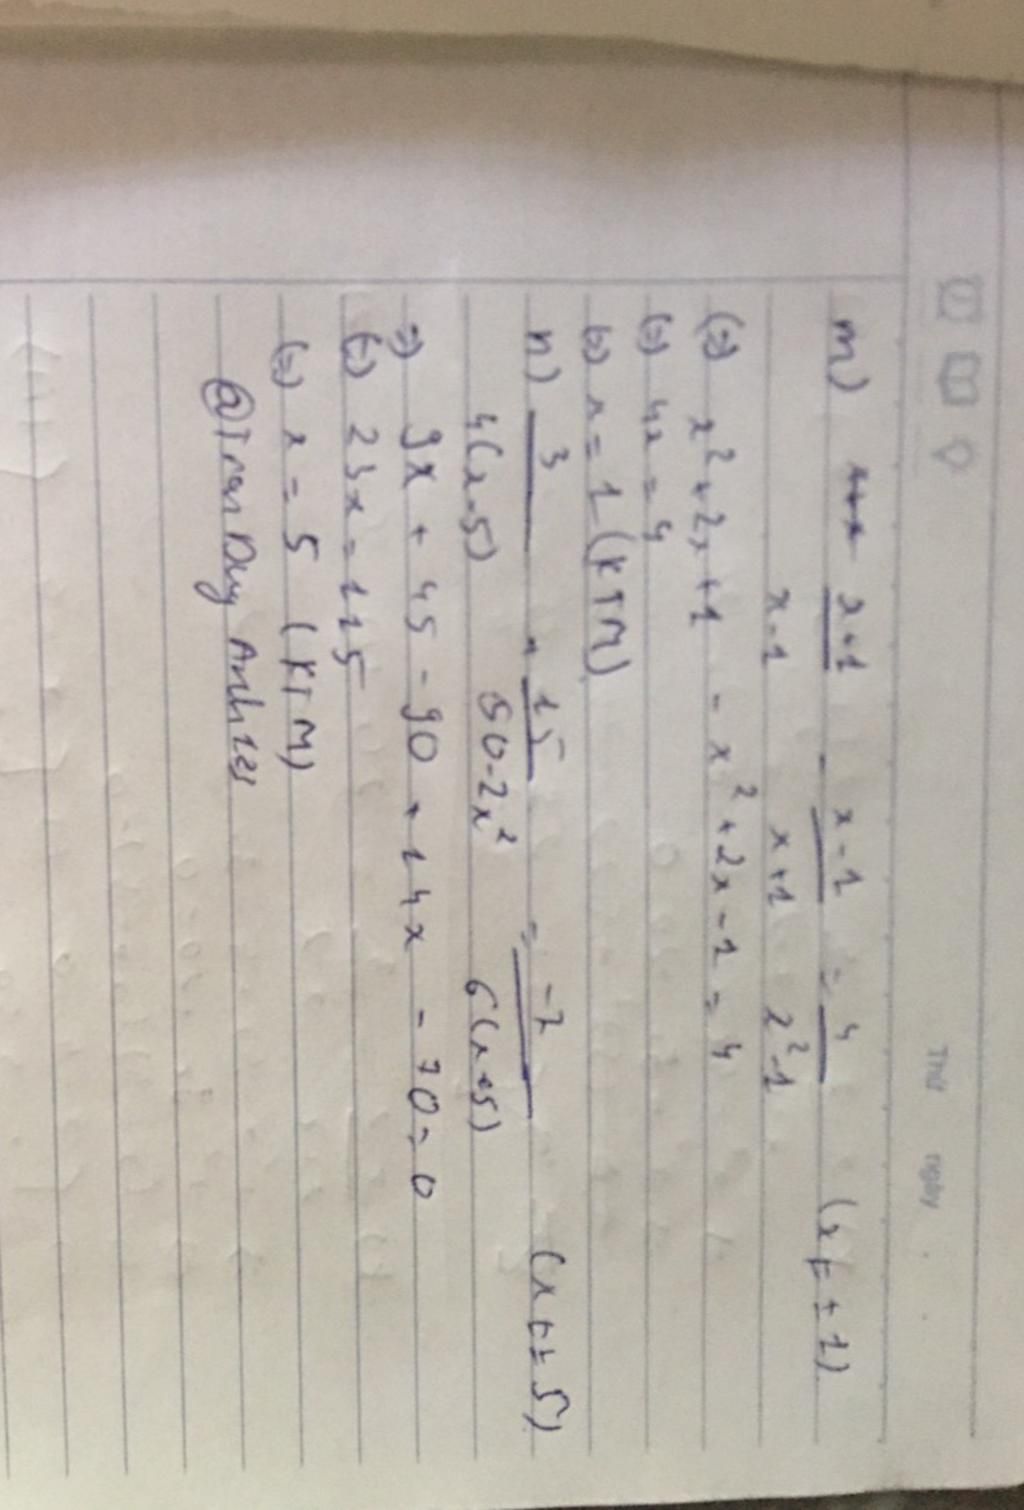 Thứ ngày
m) x+1/x-1 - x-1/x+1 = 4/x²-1 (x ≠ ±1)
(=) x² + 2x + 1 - x² + 2x - 1 = 4
(=) 4x = 4
(=) x = 1 (KTM)
n) 3/4(x-5) + 15/50-2x² = -7/6(x+5) (x ≠ ± 5)
=) 9x + 45 - 90 + 14x - 70 = 0
(=) 23x = 115
(=) x = 5 (KTM)
@Tran Duy